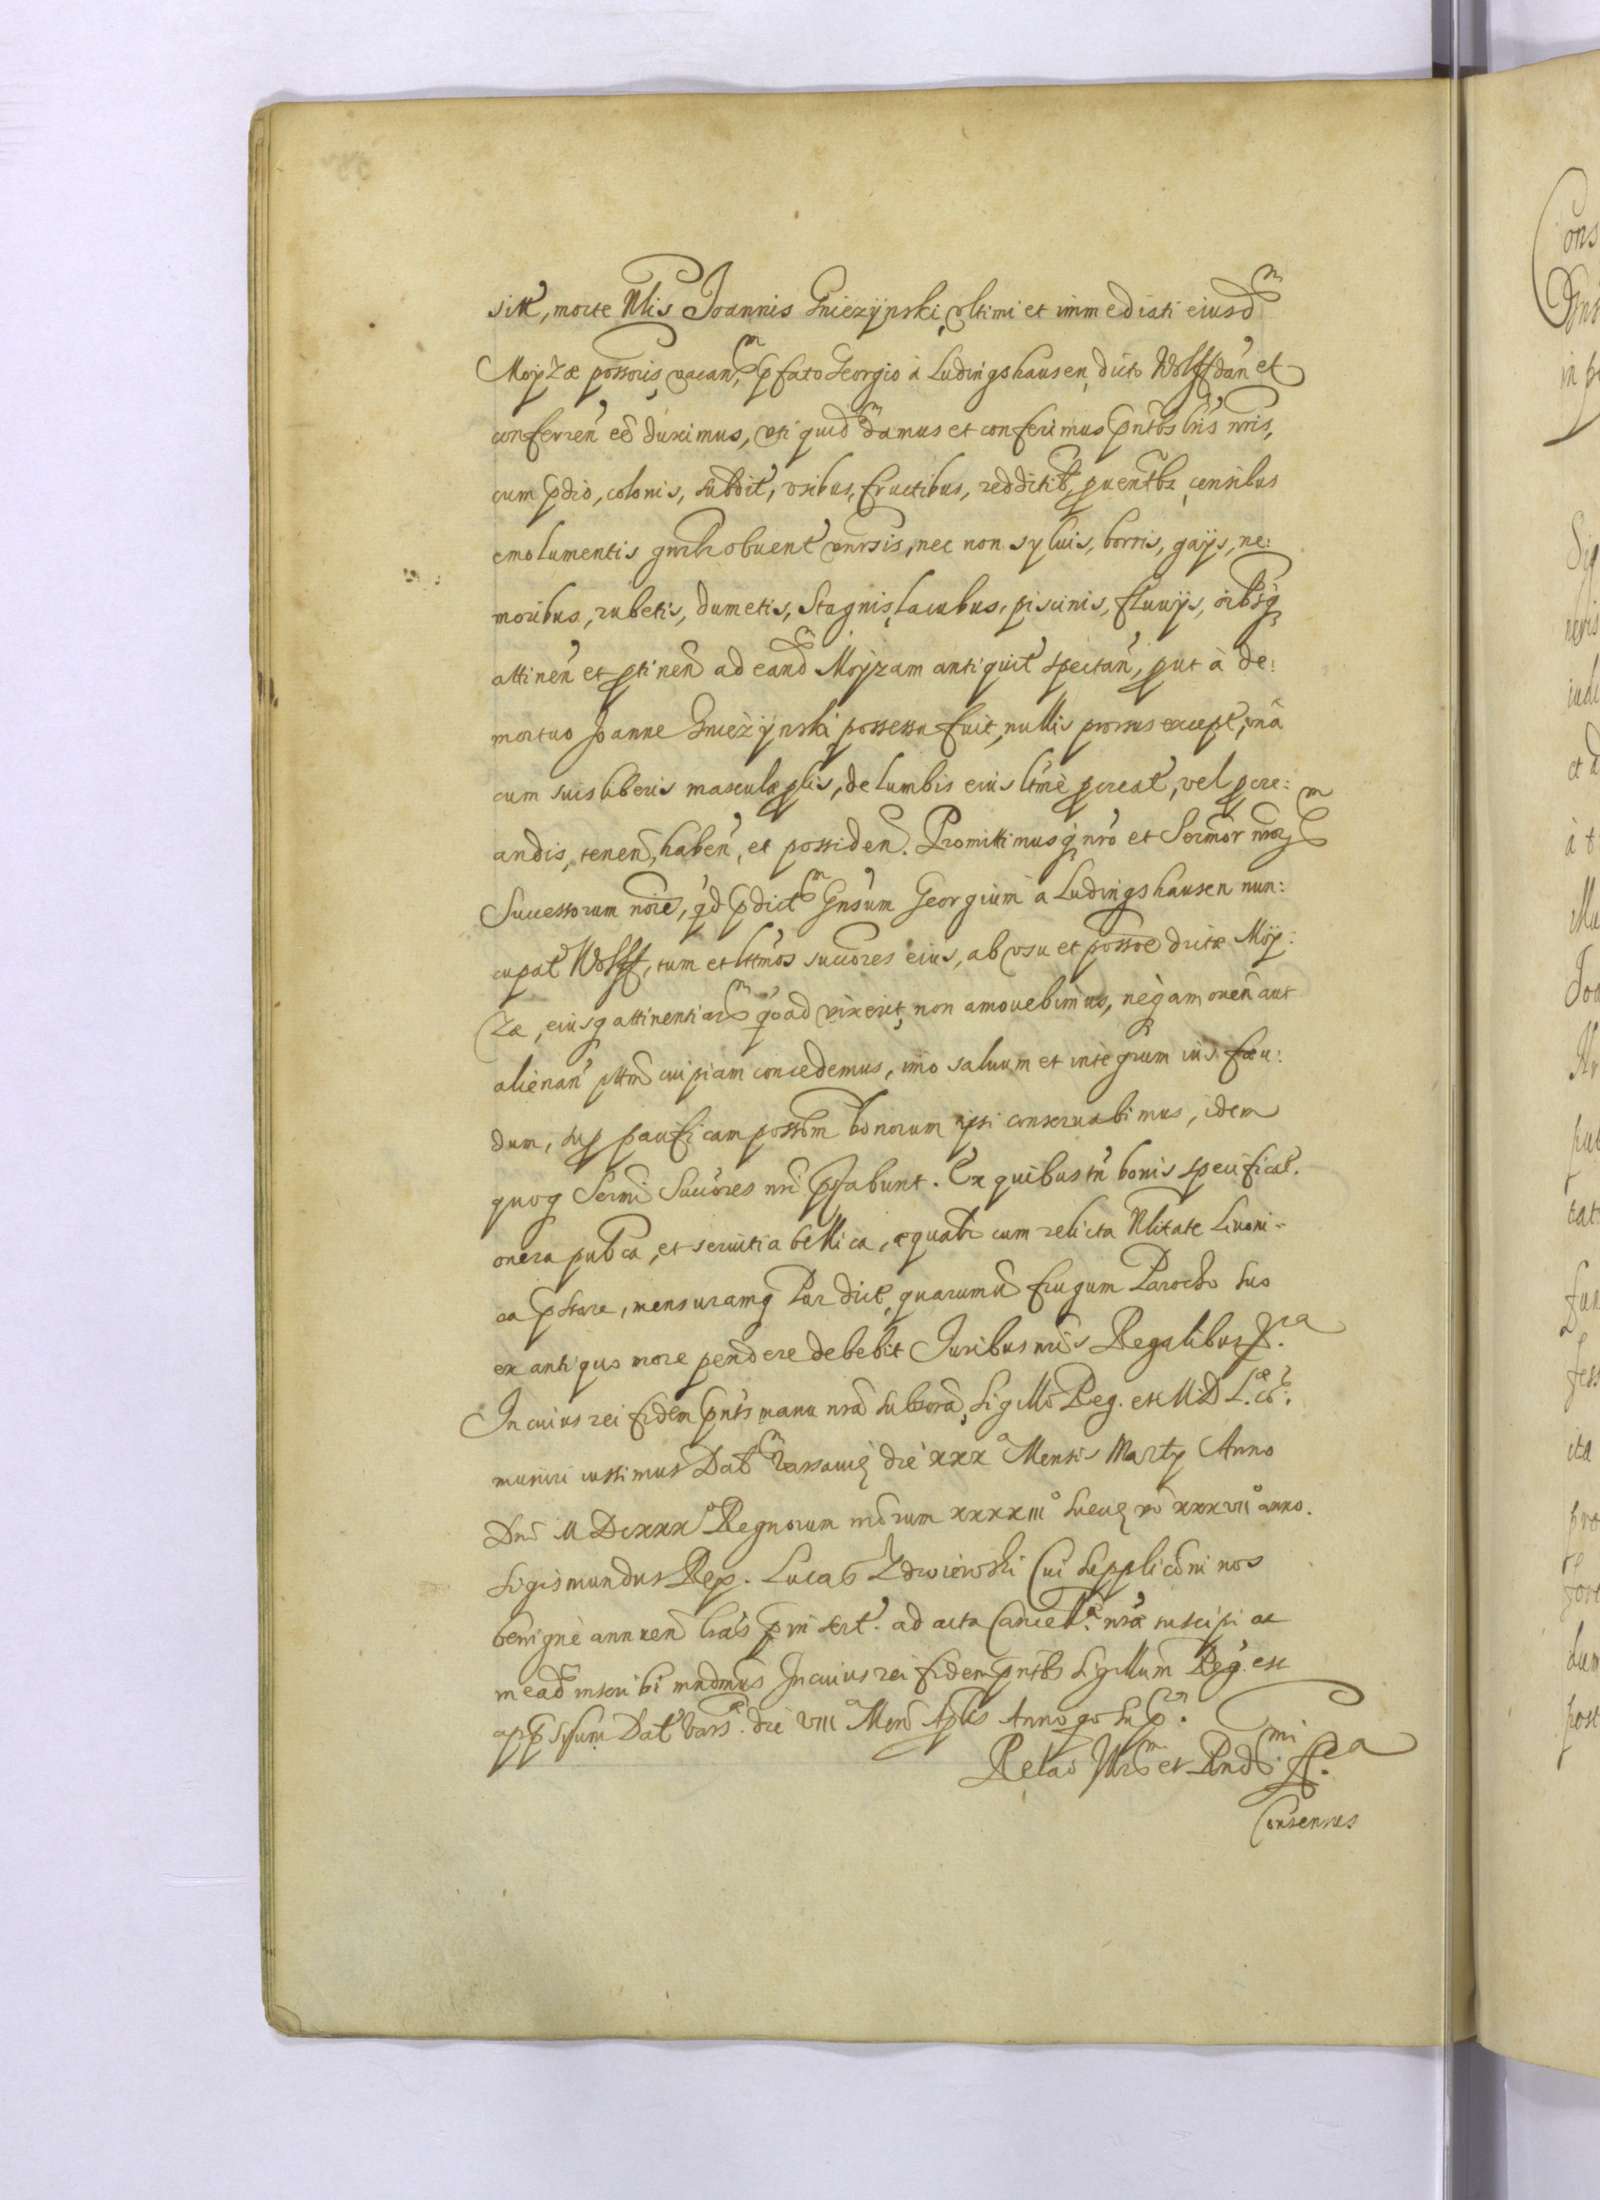 sitt, morte Nlis Joannis Gniezÿnski, vltimi et immediati eiusdm
Moÿzæ possoris, vacan, pfato Georgio à Ludingshausen, dicto Wolff dan et
conferren eē duximus, vti quidm damus et conferimus pntbs lris nris,
cum pdio, colonis, subdit, vsibus, fructibus, redditib, puentbz, censibus
emolumentis gnrlr obuent vnrsis, nec non syluis, borris, gaÿs, ne:
moribus, rubetis, dumetis, Stagnis, lacubus, piscinis, fluuÿs, oibsq
attinen et ptinen ad eandm Moÿzam antiquit spectan, put à de:
mortuo Joanne Gniezÿnski possessa fuit, nullis prorsus except, vnà
cum suis liberis masculæ plis, de lumbis eius ltmè pcreat, vel pcre:
andis, tenen, haben, et possiden. Promittimusq nro et Sermor nrorm
Successorum noie, qd pdictm Gnsum Georgium à Ludingshausen nun:
cupat Wolff, tum et lttmos succores eius, ab vsu et possoe dictæ Moÿ:
zæ, eiusq attinentiarm quoad vixerit, non amouebimus, neq amouen aut
alienan pttm cuipiam concedemus, imo saluum et integrum ius fæu:
dum, sup pacificam possom bonorum ipsi conseruabimus, idem
quoq Sermi Succores nri pstabunt. Ex quibus tn bonis specificat.
onera pubca, et seruitia bellica, æqualr cum relicta Nlitate Liuoni-
ca pstare, mensuramq Pur dict, quarumuis frugum Parocho suo
ex antiquo more pendere debebit Juribus nris Regalibus &ra.
In cuius rei fidem pnts manu nra subscra, sigillo Reg. et M D L.æ co.
muniri iussimus Datm Varsauiæ die xxx a Mensis Martÿ Anno
Dni M DCxxx o Regnorum nrorum xxxxiii o Sueciæ vo xxxvii o anno.
Sigismundus Rex. Lucas Zdroiewski Cui supplicōni nos
benignè annuen lras pinsert. ad acta Cancell.æ nræ suscipi ac
in eadm inscribi mndmus In cuius rei fidem pntbs Sigillum Reg. est
appssum Dat Vars.æ die viii a Mens Aplis Anno qo sup.ra
Relao Illrism et Rndssimi &ra
Consensus